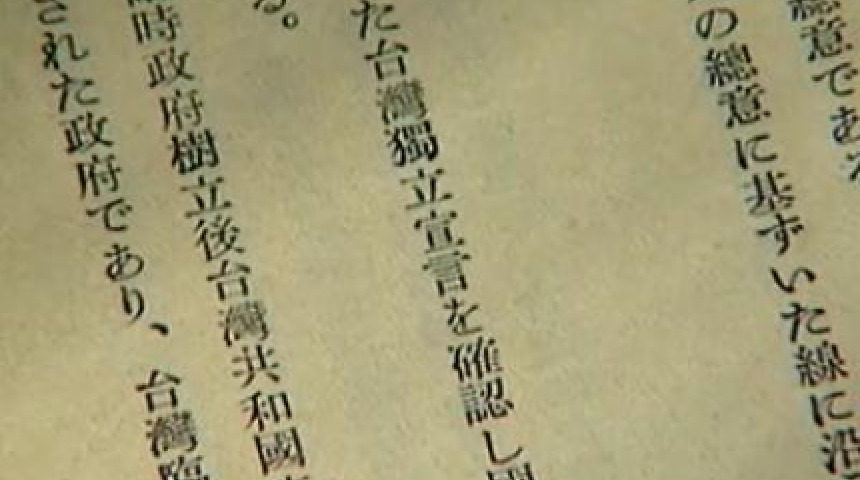 總意であ
の總意に基ずいた線に沿
た台灣獨立宣言を確認し
る。
時政府樹立後台灣共和國
された政府であり、台灣臨